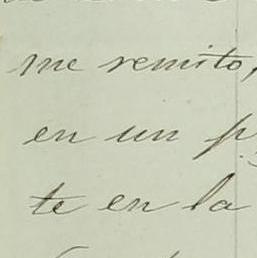 me remito,
en un
te en la